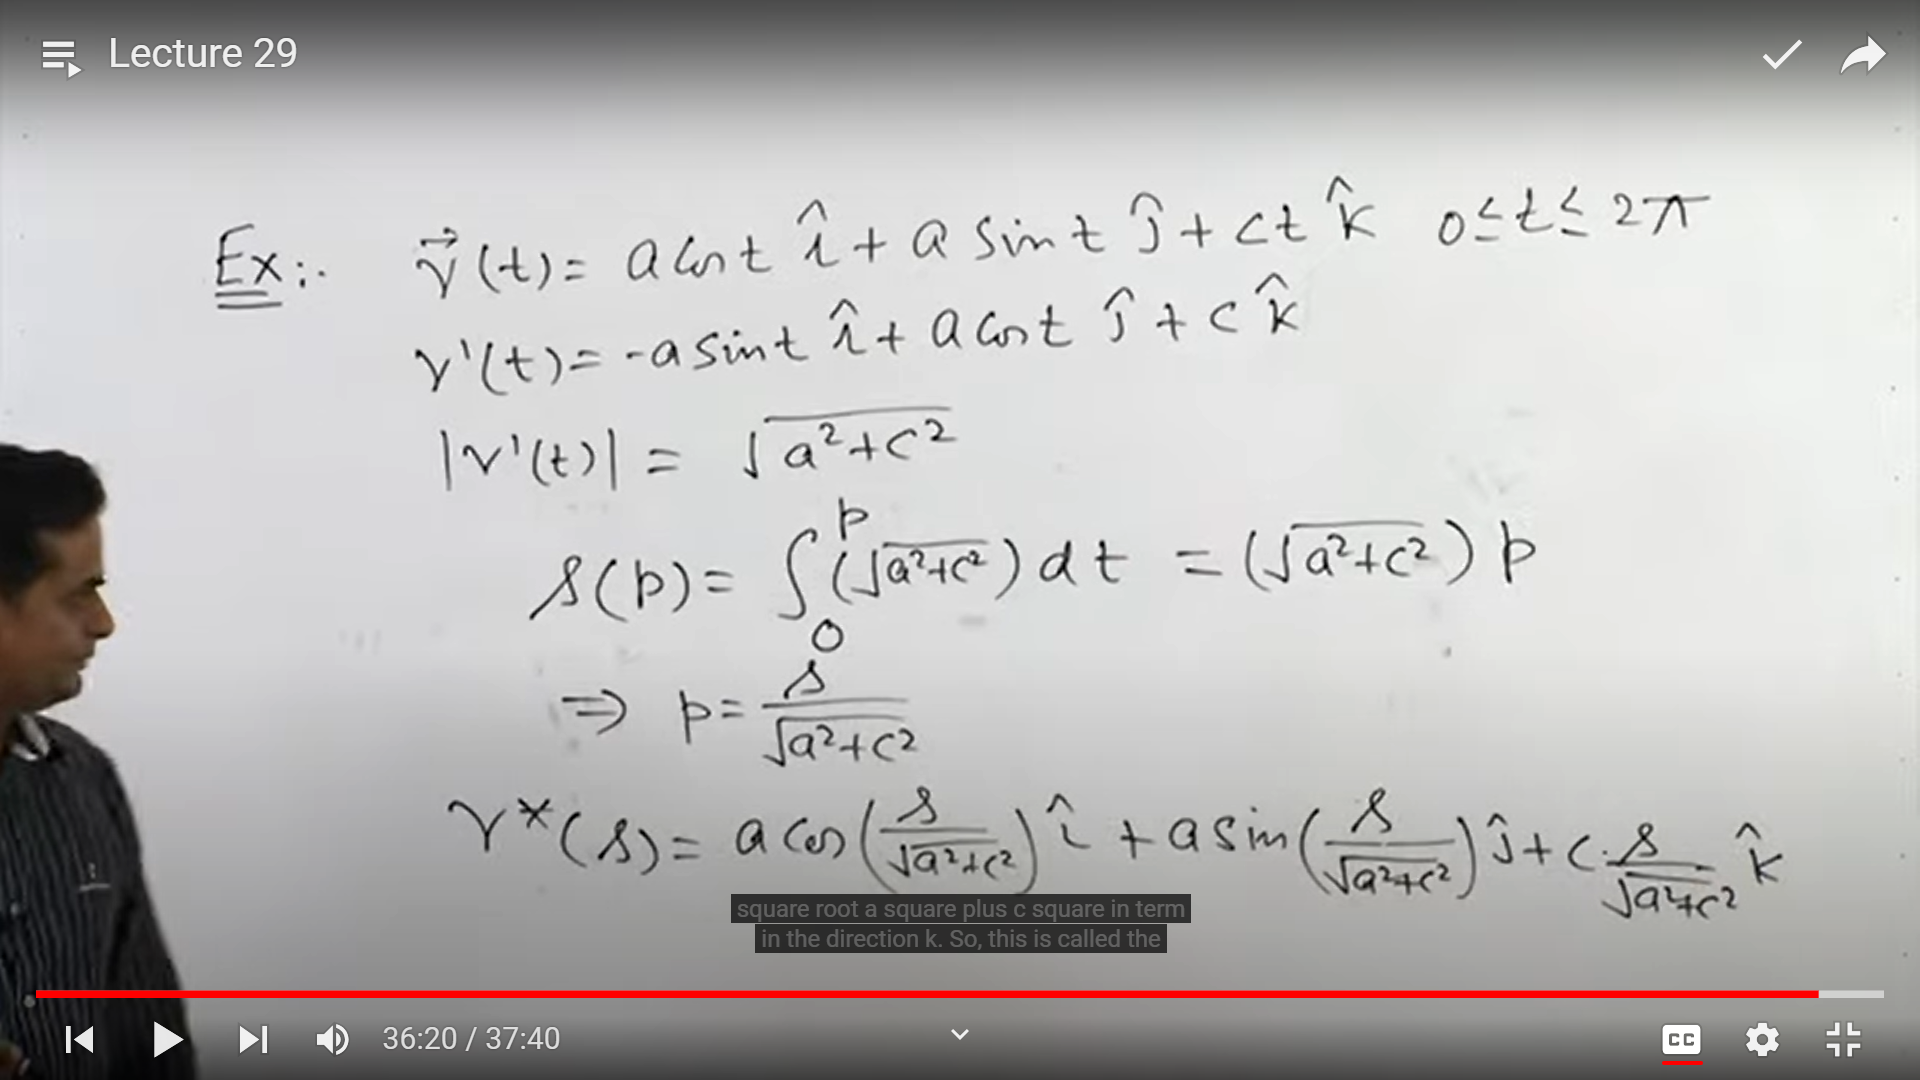 Lecture 29
Ex:. r⃗(t)= a cos t î + a sin t ĵ + ct k̂ 0≤t≤2π
r'(t)= -a sin t î + a cos t ĵ + c k̂
|r'(t)| = √a²+c²
s(p)= ∫₀ᵖ (√a²+c²) dt = (√a²+c²) p
⇒ p= s/√a²+c²
r*(s)= a cos(s/√a²+c²) î + a sin(s/√a²+c²) ĵ + c.s/√a²+c² k̂
square root a square plus c square in term
in the direction k. So, this is called the
36:20 / 37:40
CC